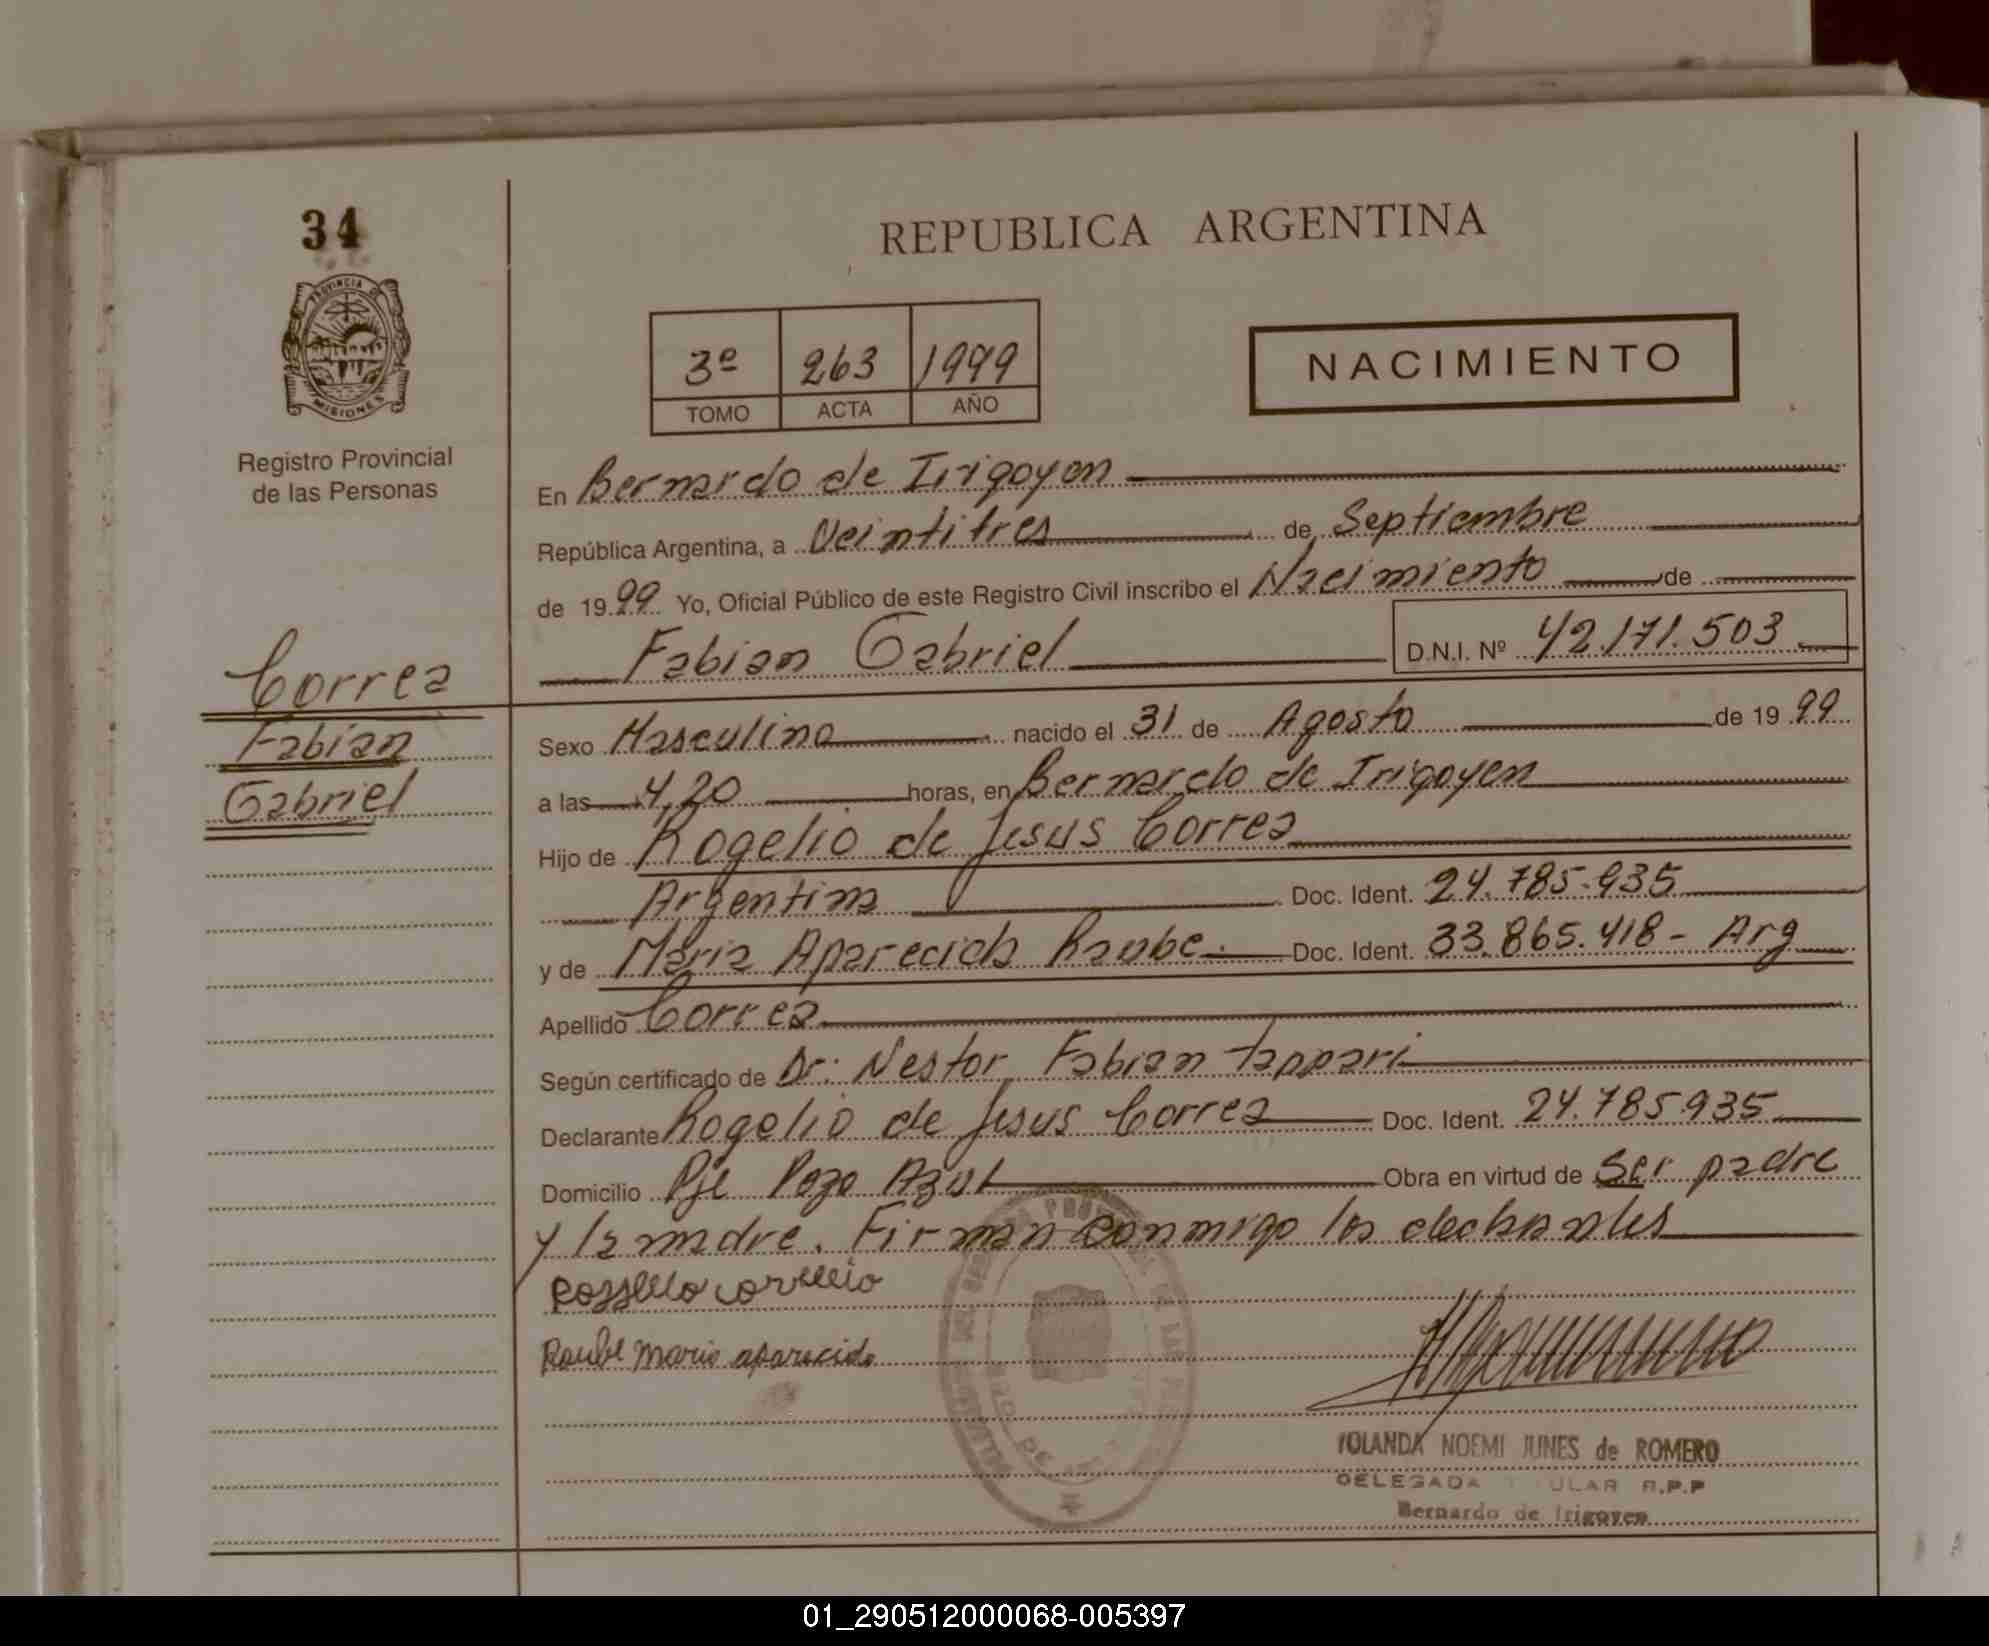 34
PROVINCIA DE
MISIONES
Registro Provincial
de las Personas
Correa
Fabian
Gabriel
REPUBLICA ARGENTINA
3º 263 1999
TOMO ACTA AÑO
NACIMIENTO
En Bernardo de Irigoyen
República Argentina, a Veintitres de Septiembre
de 1999 Yo, Oficial Público de este Registro Civil inscribo el Nacimiento de
Fabian Gabriel D.N.I. Nº 42.171.503
Sexo Masculino nacido el 31 de Agosto de 1999
a las 4,20 horas, en Bernardo de Irigoyen
Hijo de Rogelio de Jesus Correa
Argentina Doc. Ident. 24.785.935
y de Maria Aparecida Raube Doc. Ident. 33.865.418 - Arg
Apellido Correa
Según certificado de Dr: Nestor Fabian Tappari
Declarante Rogelio de Jesus Correa Doc. Ident. 24.785.935
Domicilio Pje Pozo Azul Obra en virtud de Ser padre
y la madre. Firman conmigo los declarantes
Raube Maria aparecida
YOLANDA NOEMI JUNES de ROMERO
DELEGADA TITULAR R.P.P
Bernardo de Irigoyen
01_290512000068-005397